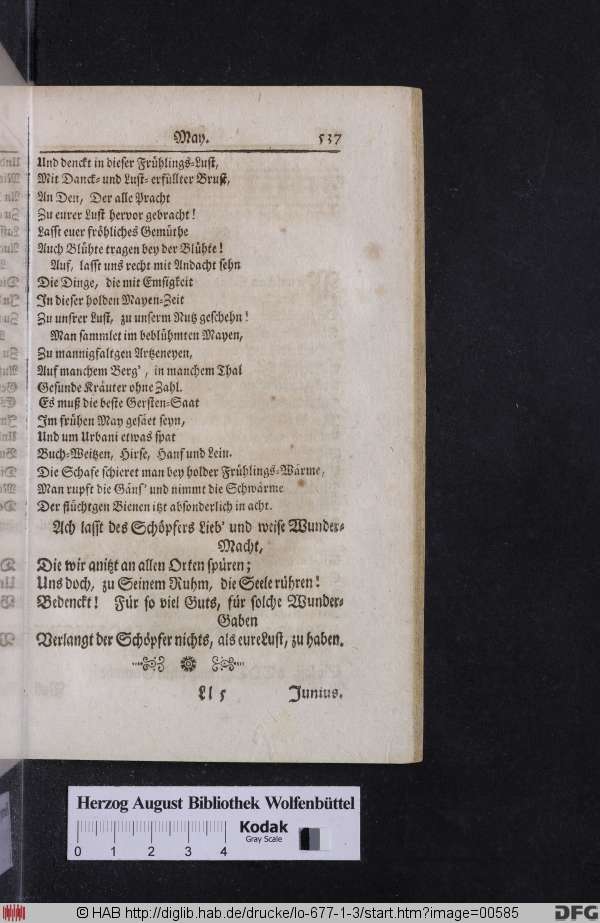 May. 537
Und denckt in dieser Frühlings-Lust,
Mit Danck- und Lust- erfüllter Brust,
An Den, Der alle Pracht
Zu eurer Lust hervor gebracht!
Lasst euer fröhliches Gemüthe
Auch Blühte tragen bey der Blühte!
Auf, lasst uns recht mit Andacht sehn
Die Dinge, die mit Emsigkeit
In dieser holden Mayen-Zeit
Zu unsrer Lust, zu unserm Nutz geschehn!
Man sammlet im beblühmten Mayen,
Zu mannigfaltgen Artzeneyen,
Auf manchem Berg', in manchem Thal
Gesunde Kräuter ohne Zahl.
Es muß die beste Gersten-Saat
Im frühen May gesäet seyn,
Und um Urbani etwas spat
Buch-Weitzen, Hirse, Hanf und Lein.
Die Schafe schieret man bey holder Frühlings-Wärme,
Man rupft die Gäns' und nimmt die Schwärme
Der flüchtgen Bienen itzt absonderlich in acht.
Ach lasst des Schöpfers Lieb' und weise Wunder-
Macht,
Die wir anitzt an allen Orten spüren;
Uns doch, zu Seinem Ruhm, die Seele rühren!
Bedenckt! Für so viel Guts, für solche Wunder-
Gaben
Verlangt der Schöpfer nichts, als eure Lust, zu haben.
Ll 5 Junius.
Herzog August Bibliothek Wolfenbüttel
Kodak
Gray Scale
0 1 2 3 4
© HAB http://diglib.hab.de/drucke/lo-677-1-3/start.htm?image=00585
DFG